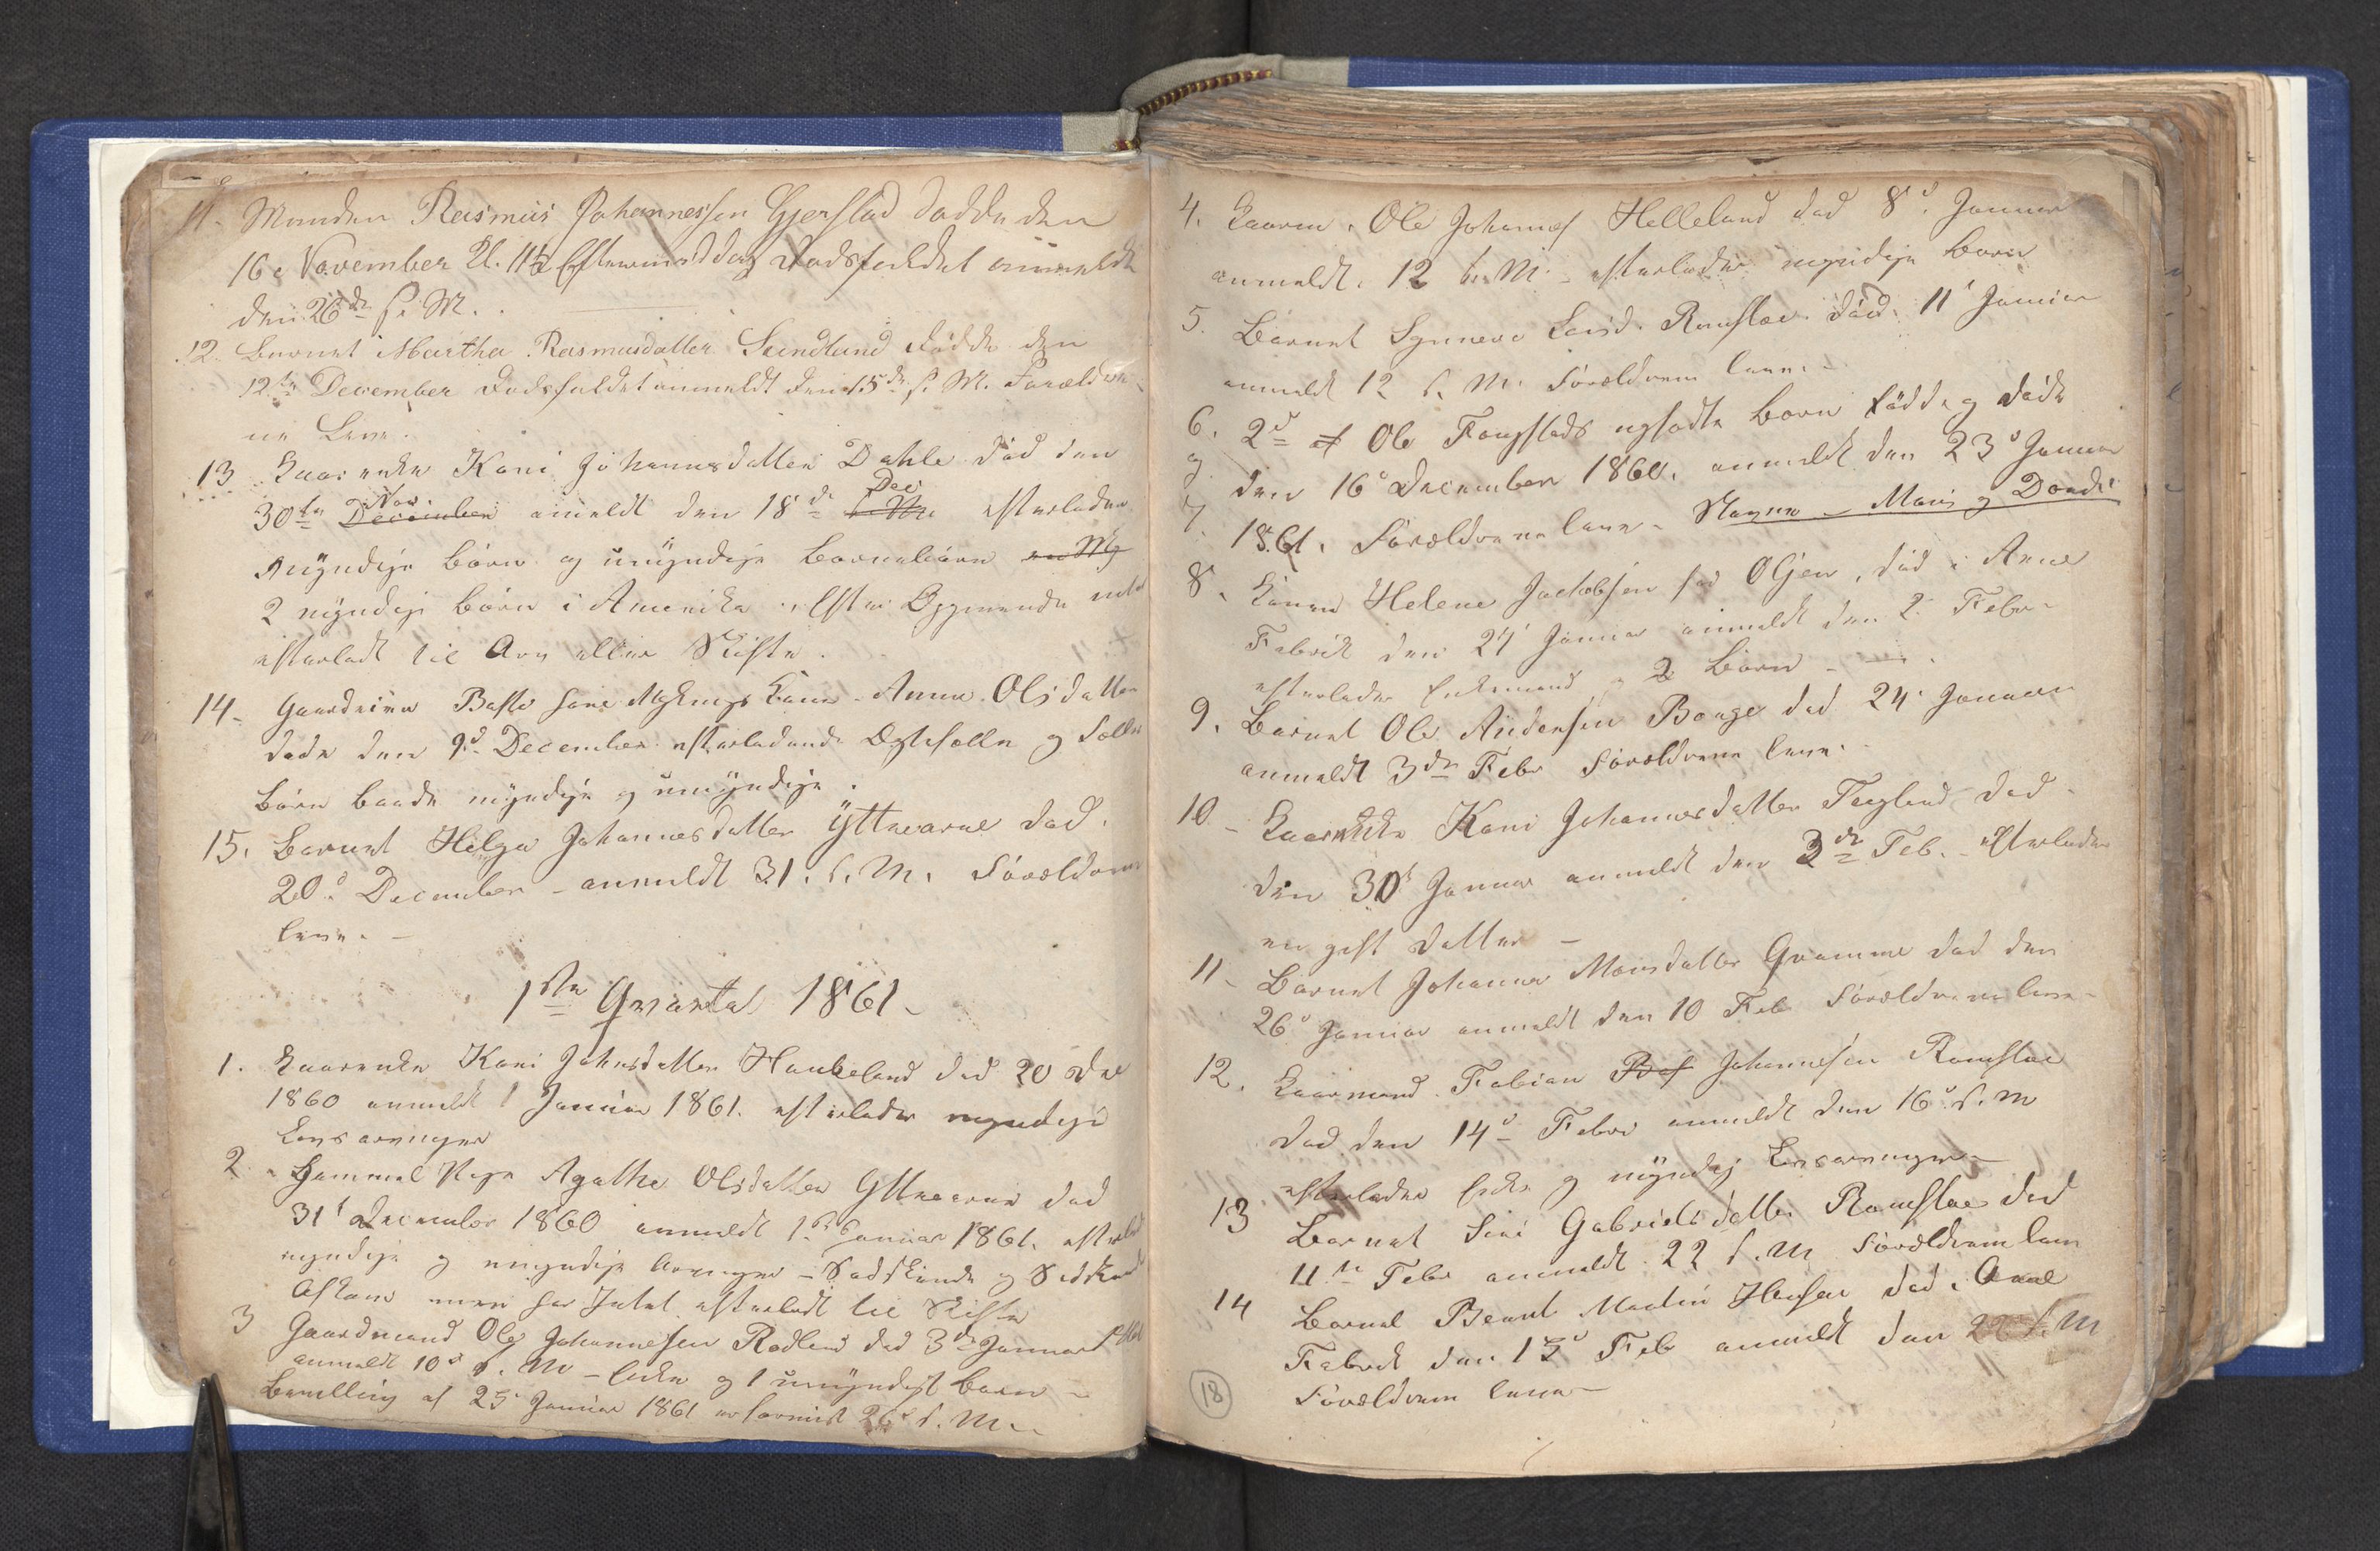 11. Manden Rasmus Johannessen Gjerstad døde den
16e November Kl. 11½ Eftermiddag Dødsfaldet anmeldt
den 26de s. M.
12. Barnet Martha Rasmusdatter Sundland døde den
12te December Dødsfaldet anmeldt den 15de s. M. Forældre-
ne Leve.
13 Kaarenke Kari Johannesdatter Dahle død den
30te December Nov anmeldt den 18de s. M. Dec efterlader
myndige Børn og umyndige Børnebørn
2 myndige Børn i Amerika. Efter Opgivende intet
efterladt til Arv eller Skifte.
14. Gaardbruger Kone Anna Olsdatter
døde den 9d December efterladende Ægtefælle og Fælles
Børn baade myndige og umyndige.
15. Barnet Helga Johannesdatter Yttrearne død.
20d December - anmeldt 31. s. M. Forældrene
leve. -
1ste Qvartal 1861.
1. Kaarenke Kari Johnsdatter Haukeland død 20 Dec
1860 anmeldt 1 Januar 1861. efterlader myndige
Livsarvinger
2. Gammel Pige Agathe Olsdatter Yttrearne død
31t December 1860 anmeldt 1st Januar 1861. efterladt
myndige og umyndige Arvinger - Sødskende og Sødskende
Afkom men har Intet efterladt til Skifte
3 Gaardmand Ole Johannessen Rødland død 3de Januar
anmeldt 10d s. M. - Enke og 1 umyndigt Barn -
Bevilling af 25 Januar 1861 26d s. M.
4. Kaarm. Ole Johannes Helleland død 8d. Januar
anmeldt. 12 s. M. - efterlader myndige Børn
5. Barnet Synneve Lavsd. Romslo død. 11t Januar
anmeldt 12 s. M. Forældrene leve. -
6. 2d af Ole Fougstads Børn født og døde
og den 16d December 1860. anmeldt den 23d Januar
7. 1861. Forældrene leve -
8. Konen Helene Jacobsen død i Arne
Fabrik den 27 Januar anmeldt den 2 Febr.
efterlader Enkemand og 2 Børn -
9. Barnet Ole Andersen Borge død 24. Januar
anmeldt 3de Febr Forældrene leve.
10 - Kaarenke Kari Johannesdatter Teigland død
den 30t Januar anmeldt den 3de Feb. - efterlader
en gift Datter -
11 - Barnet Johanna Monsdatter Gramme død den
26d Januar anmeldt den 10 Feb Forældrene leve -
12. Kaarmand Fabian Johannesen Romsloe
død den 14d Febr anmeldt den 16d s. M
efterlader Enke og myndig Livsarvinger -
13 Barnet Siri Gabrielsdatter Romsloe død
11te Febr anmeldt 22 s. M Forældrene leve
14 Barnet Bernt Martin Hansen død i Arne
Fabrik den 15d Feb anmeldt den 22 s. M
Forældrene leve -
18